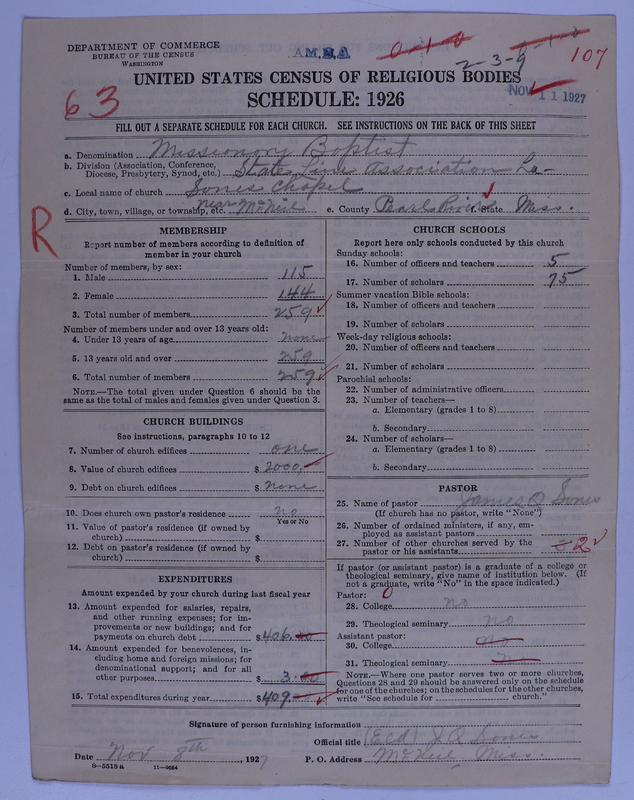 DEPARTMENT OF COMMERCE
BUREAU OF THE CENSUS
WASHINGTON
A.M.B.A
0-1-0
2-3-9
107
UNITED STATES CENSUS OF RELIGIOUS BODIES
NOV 11 1927
63
SCHEDULE: 1926
FILL OUT A SEPARATE SCHEDULE FOR EACH CHURCH. SEE INSTRUCTIONS ON THE BACK OF THIS SHEET
a. Denomination Missionary Baptist
b. Division (Association, Conference, Diocese, Presbytery, Synod, etc.) State Line Association La-
c. Local name of church Sones Chapel
d. City, town, village, or township, etc. near McNeil e. County Pearl River f. State Miss.
R
MEMBERSHIP
Report number of members according to definition of
member in your church
Number of members, by sex:
1. Male 115
2. Female 144
3. Total number of members 259
Number of members under and over 13 years old:
4. Under 13 years of age none
5. 13 years old and over 259
6. Total number of members 259
NOTE.—The total given under Question 6 should be the
same as the total of males and females given under Question 3.
CHURCH BUILDINGS
See instructions, paragraphs 10 to 12
7. Number of church edifices one
8. Value of church edifices $ 2000.
9. Debt on church edifices $ none
10. Does church own pastor's residence? no
Yes or No
11. Value of pastor's residence (if owned by
church) $
12. Debt on pastor's residence (if owned by
church) $
EXPENDITURES
Amount expended by your church during last fiscal year
13. Amount expended for salaries, repairs,
and other running expenses; for im-
provements or new buildings; and for
payments on church debt $406.00
14. Amount expended for benevolences, in-
cluding home and foreign missions; for
denominational support; and for all
other purposes $ 3.00
15. Total expenditures during year $409.
CHURCH SCHOOLS
Report here only schools conducted by this church
Sunday schools:
16. Number of officers and teachers 5
17. Number of scholars 75
Summer vacation Bible schools:
18. Number of officers and teachers
19. Number of scholars
Week-day religious schools:
20. Number of officers and teachers
21. Number of scholars
Parochial schools:
22. Number of administrative officers
23. Number of teachers—
a. Elementary (grades 1 to 8)
b. Secondary
24. Number of scholars—
a. Elementary (grades 1 to 8)
b. Secondary
PASTOR
25. Name of pastor James Q Sones
(If church has no pastor, write "None")
26. Number of ordained ministers, if any, em-
ployed as assistant pastors
27. Number of other churches served by the
pastor or his assistants 2
If pastor (or assistant pastor) is a graduate of a college or
theological seminary, give name of institution below. (If
not a graduate, write "No" in the space indicated.)
Pastor: 0
28. College no
29. Theological seminary no
Assistant pastor:
30. College no
31. Theological seminary no
NOTE.—Where one pastor serves two or more churches,
Questions 28 and 29 should be answered only on the schedule
for one of the churches; on the schedules for the other churches,
write "See schedule for ______ church."
Signature of person furnishing information
Official title (Eld) J. Q Sones
Date Nov 8th, 1927 P. O. Address McNeil, Miss.
8-5518a 11-9684